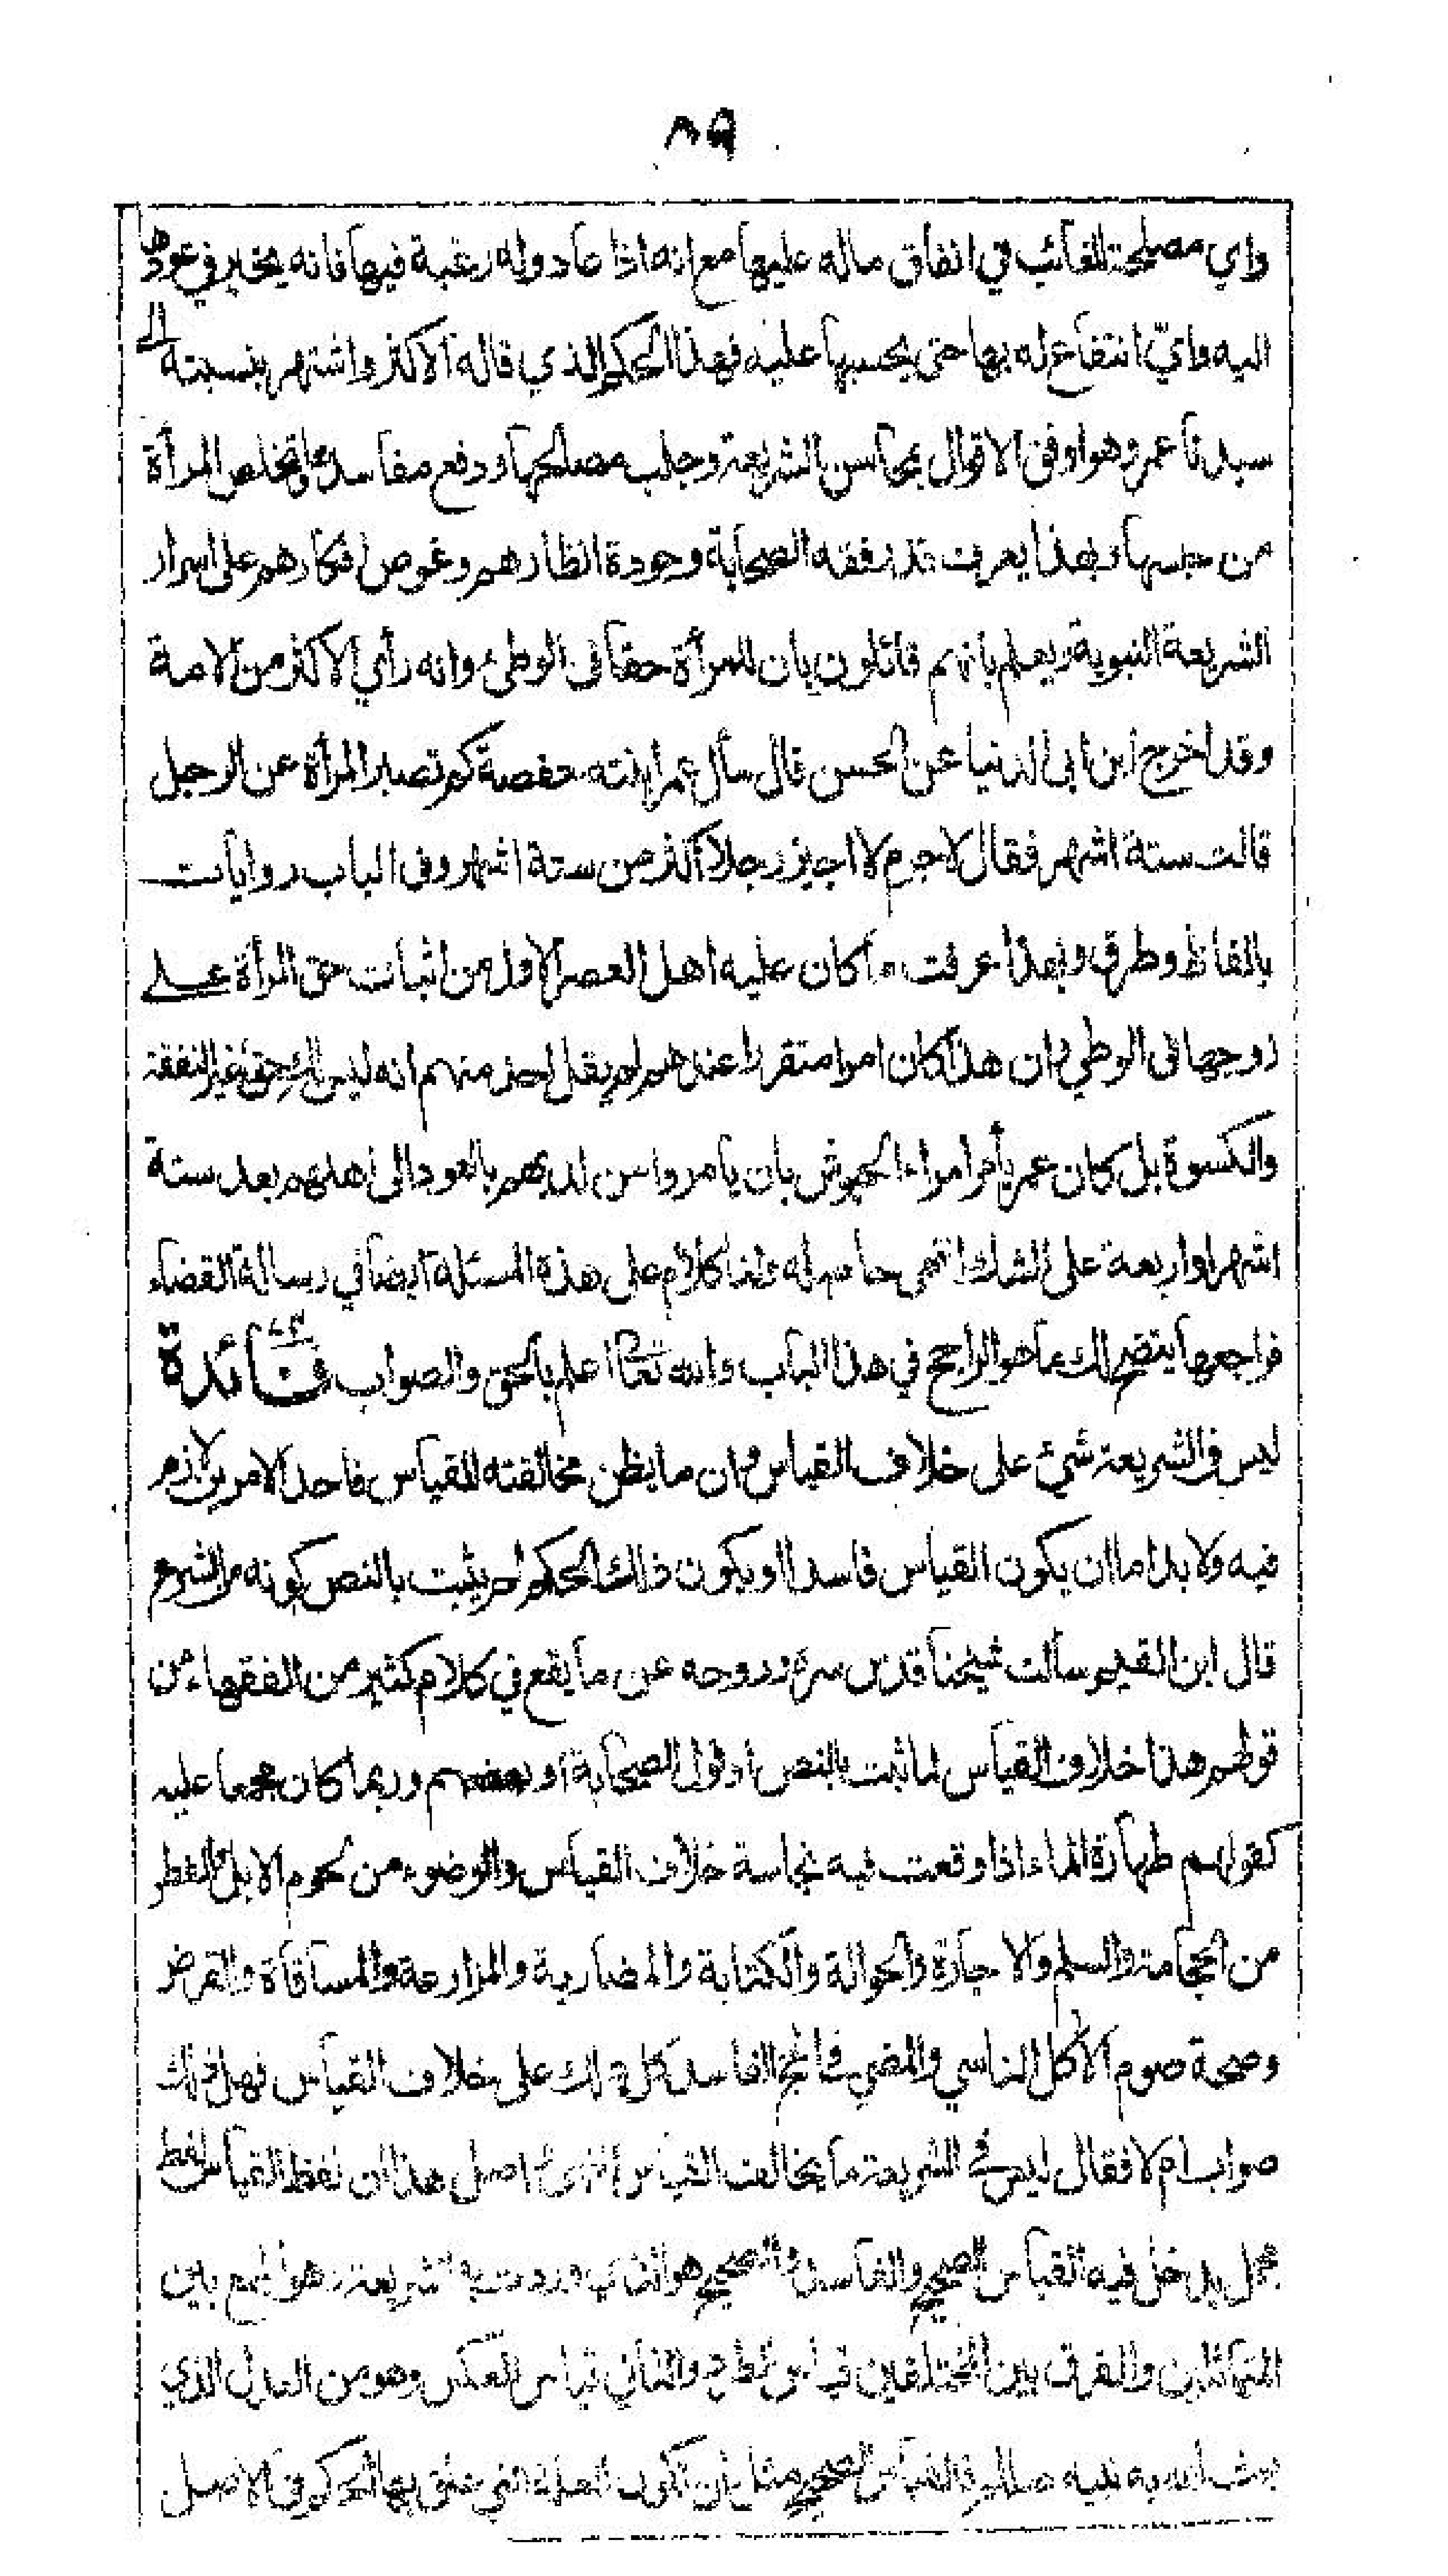 ٨٩
واي مصلحة للغائب في انفاق ماله عليها مع انه اذا عاد وله رغبة فيها فانه يخير في عودها
اليه واي انتفاع له بها حتى يحبسها عليه فهذا الحكم الذي قاله الاكثر واشتهر بنسبته الى
سيدنا عمر وهو اوفق الاقوال بمحاسن الشريعة وجلب مصالحها ودفع مفاسدها وتخلص المرأة
من حبسها وبهذا يعرف قدر فقه الصحابة وجودة انظارهم وغوص افكارهم على اسرار
الشريعة النبوية ويعلم بانهم قائلون بان للمرأة حقا فى الوطئ وانه رأي الاكثر من الامة
وقد اخرج ابن ابى الدنيا عن الحسن قال سأل عمر ابنته حفصة كم تصبر المرأة عن الرجل
قالت ستة اشهر فقال لا جرم لا اجيز رجلا اكثر من ستة اشهر وفى الباب روايات
بالفاظ وطرق وبهذا عرفت ما كان عليه اهل العصر الاول من اثبات حق المرأة على
زوجها فى الوطي وان هذا كان امرا متقررا عندهم لم يقل احد منهم انه ليس لك حق غير النفقة
والكسوة بل كان عمر يأمر امراء الجيوش بان يامروا من لديهم بالعود الى اهلهم بعد ستة
اشهر او اربعة على الشك انتهى حاصله ولنا كلام على هذه المسئلة ايضا في رسالة القضاء
فراجعها يتضح لك ما هو الراجح في هذا الباب والله تعالى اعلم بالحق والصواب فائدة
ليس في الشريعة شئ على خلاف القياس وان ما يظن مخالفته للقياس فاحد الامرين لازم
فيه ولا بد اما ان يكون القياس فاسدا او يكون ذلك الحكم لم يثبت بالنص كونه من الشرع
قال ابن القيم سألت شيخنا قدس سره وروحه عن ما يقع في كلام كثير من الفقهاء من
قولهم هذا خلاف القياس لما ثبت بالنص او قول الصحابة او بعضهم وربما كان مجمعا عليه
كقولهم طهارة الماء اذا وقعت فيه نجاسة خلاف القياس والوضوء من لحوم الابل والفطر
من الحجامة والسلم والاجارة والحوالة والكتابة والمضاربة والمزارعة والمساقاة والقرض
وصحة صوم الاكل الناسي والمضي في الحج الفاسد كل ذلك على خلاف القياس فهل ذلك
صواب ام لا فقال ليس في الشريعة ما يخالف القياس انتهى اصل هذا ان لفظ القياس لفظ
مجمل يدخل فيه القياس الصحيح والفاسد والصحيح هو الذي وردت به الشريعة وهو الجمع بين
المتماثلين والفرق بين المختلفين قياس الطرد والثاني قياس العكس وهو من العدل الذي
بعث الله به نبيه صللم فالقياس الصحيح مثل ان تكون العلة التي علق بها الحكم في الاصل